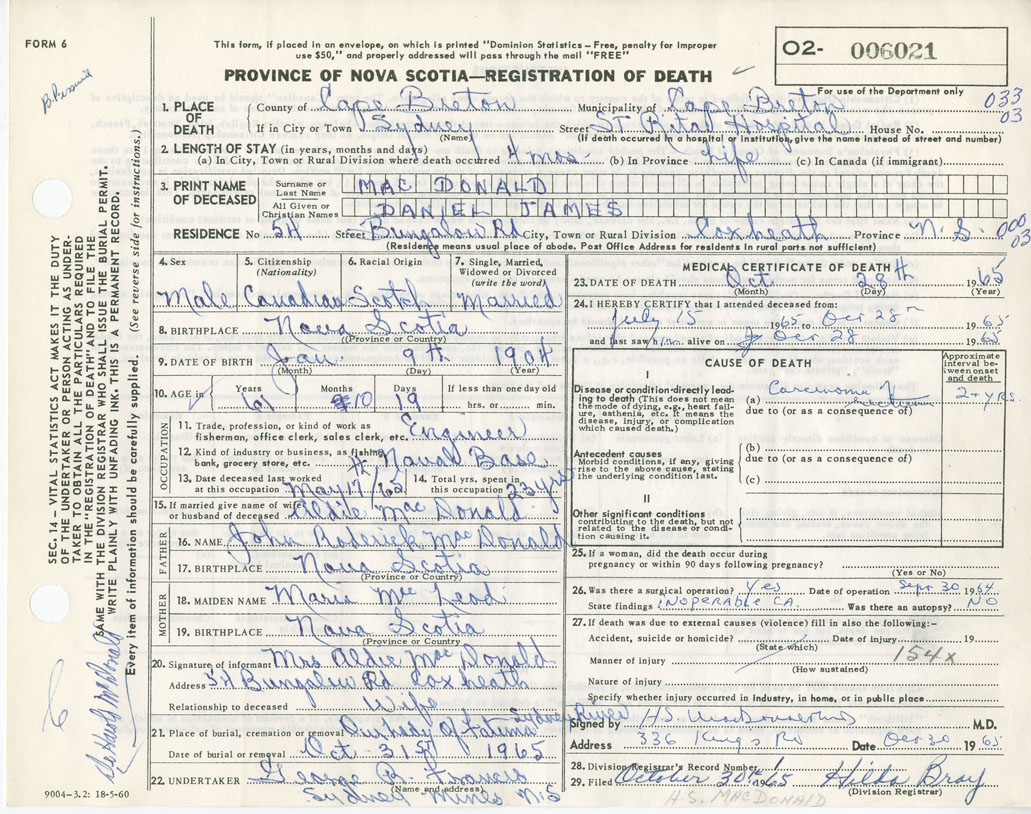 FORM 6
This form, if placed in an envelope, on which is printed "Dominion Statistics – Free, penalty for improper
use $50," and properly addressed will pass through the mail "FREE"
PROVINCE OF NOVA SCOTIA—REGISTRATION OF DEATH
O2- 006021
For use of the Department only
033
03
1. PLACE OF DEATH
County of Cape Breton Municipality of Cape Breton
If in City or Town Sydney Street St Rita's Hospital House No.
(Name) (If death occurred in a hospital or institution, give its name instead of street and number)
2. LENGTH OF STAY (in years, months and days)
(a) In City, Town or Rural Division where death occurred 4 mos. (b) In Province Life (c) In Canada (if immigrant)
3. PRINT NAME OF DECEASED
Surname or Last Name MAC DONALD
All Given or Christian Names DANIEL JAMES
RESIDENCE No 54 Street Bungalow Rd City, Town or Rural Division Coxheath Province N.S. 000
03
(Residence means usual place of abode. Post Office Address for residents in rural parts not sufficient)
4. Sex
Male
5. Citizenship (Nationality)
Canadian
6. Racial Origin
Scotch
7. Single, Married, Widowed or Divorced (write the word)
Married
8. BIRTHPLACE Nova Scotia
(Province or Country)
9. DATE OF BIRTH Jan. 9th 1904
(Month) (Day) (Year)
10. AGE in
Years Months Days If less than one day old
61 10 19 hrs. or min.
OCCUPATION
11. Trade, profession, or kind of work as
fisherman, office clerk, sales clerk, etc. Engineer
12. Kind of industry or business, as fishing,
bank, grocery store, etc. Naval Base
13. Date deceased last worked
at this occupation May 17/65
14. Total yrs. spent in
this occupation 23 yrs
15. If married give name of wife
or husband of deceased Aldie Mac Donald
FATHER
16. NAME John Roderick Mac Donald
17. BIRTHPLACE Nova Scotia
(Province or Country)
MOTHER
18. MAIDEN NAME Maria Mc Leod
19. BIRTHPLACE Nova Scotia
(Province or Country)
20. Signature of informant Mrs Aldie Mac Donald
Address 54 Bungalow Rd Coxheath
Relationship to deceased Wife
21. Place of burial, cremation or removal Our Lady of Fatima Sydney River
Date of burial or removal Oct 31st 1965
22. UNDERTAKER George B. Francis
(Name and address)
Sydney Mines N.S
9004–3.2: 18-5-60
MEDICAL CERTIFICATE OF DEATH
23. DATE OF DEATH Oct 28th 1965
(Month) (Day) (Year)
24. I HEREBY CERTIFY that I attended deceased from:
July 15 1965 to Oct 28 1965
and last saw him alive on Oct 28 1965
CAUSE OF DEATH
Approximate interval between onset and death
I
Disease or condition directly leading to death (This does not mean the mode of dying, e.g., heart failure, asthenia, etc. It means the disease, injury, or complication which caused death.)
(a) Carcinoma of 2+ yrs.
due to (or as a consequence of)
Antecedent causes
Morbid conditions, if any, giving rise to the above cause, stating the underlying condition last.
(b)
due to (or as a consequence of)
(c)
II
Other significant conditions
contributing to the death, but not related to the disease or condition causing it.
25. If a woman, did the death occur during
pregnancy or within 90 days following pregnancy?
(Yes or No)
26. Was there a surgical operation? Yes Date of operation Sept 30 1964
State findings Inoperable CA. Was there an autopsy? NO
27. If death was due to external causes (violence) fill in also the following:–
Accident, suicide or homicide? Date of injury 19
(State which)
154x
Manner of injury
(How sustained)
Nature of injury
Specify whether injury occurred in industry, in home, or in public place
Signed by H.S. MacDonald M.D.
Address 336 King's Rd Date Oct 30 1965
28. Division Registrar's Record Number
29. Filed October 30th 1965 Hilda Bray
(Division Registrar)
H.S. MACDONALD
SEC. 14 – VITAL STATISTICS ACT MAKES IT THE DUTY
OF THE UNDERTAKER OR PERSON ACTING AS UNDER-
TAKER TO OBTAIN ALL THE PARTICULARS REQUIRED
IN THE "REGISTRATION OF DEATH" AND TO FILE THE
SAME WITH THE DIVISION REGISTRAR WHO SHALL ISSUE THE BURIAL PERMIT.
WRITE PLAINLY WITH UNFADING INK. THIS IS A PERMANENT RECORD.
Every item of information should be carefully supplied. (See reverse side for instructions.)
6